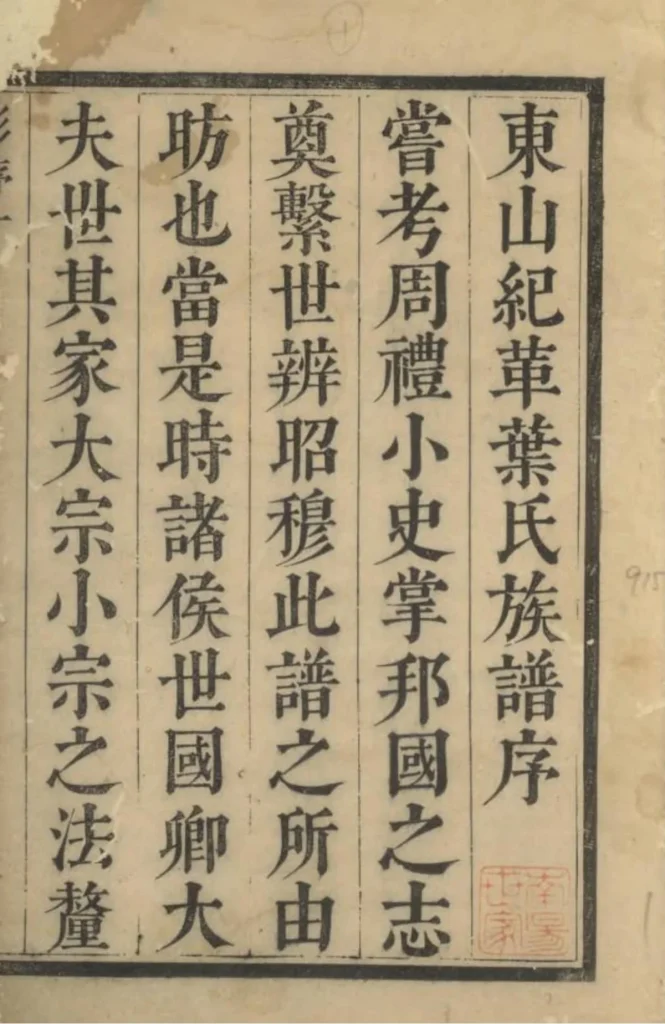 東山紀革葉氏族譜序
嘗考周禮小史掌邦國之志
奠繫世辨昭穆此譜之所由
昉也當是時諸侯世國卿大
夫世其家大宗小宗之法釐
南陽
世家
915